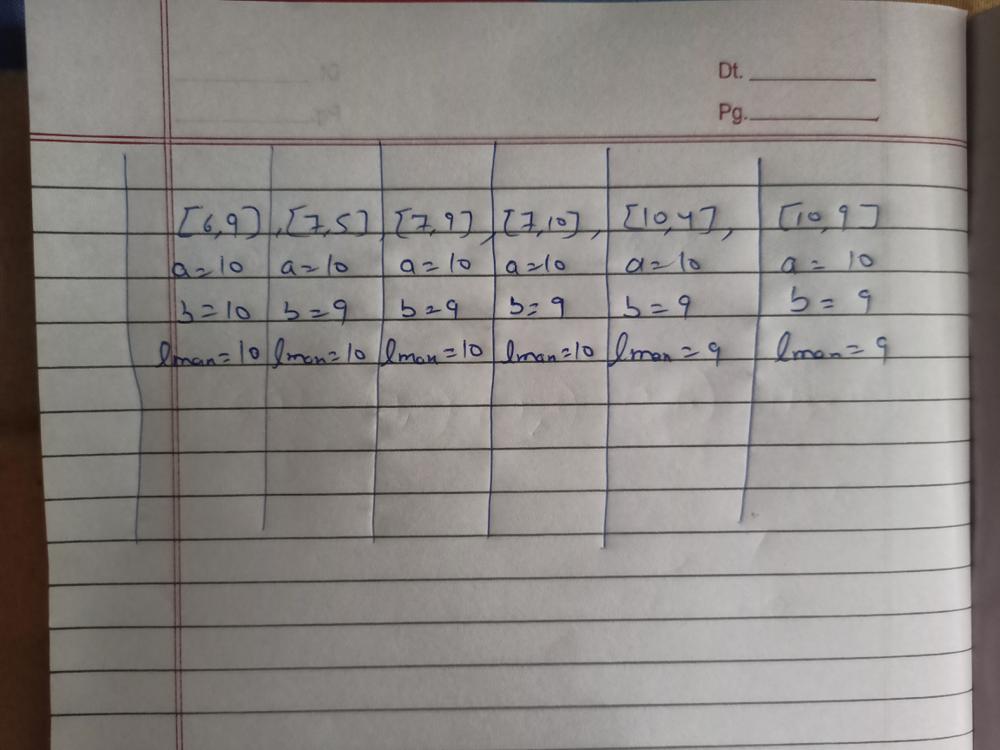 Dt.
Pg.
[6,9], [7,5], [7,9], [7,10], [10,4], [10,9]
a=10 a=10 a=10 a=10 a=10 a= 10
b=10 b=9 b=9 b=9 b=9 b= 9
lman=10 lman=10 lman=10 lman=10 lman=9 lman=9